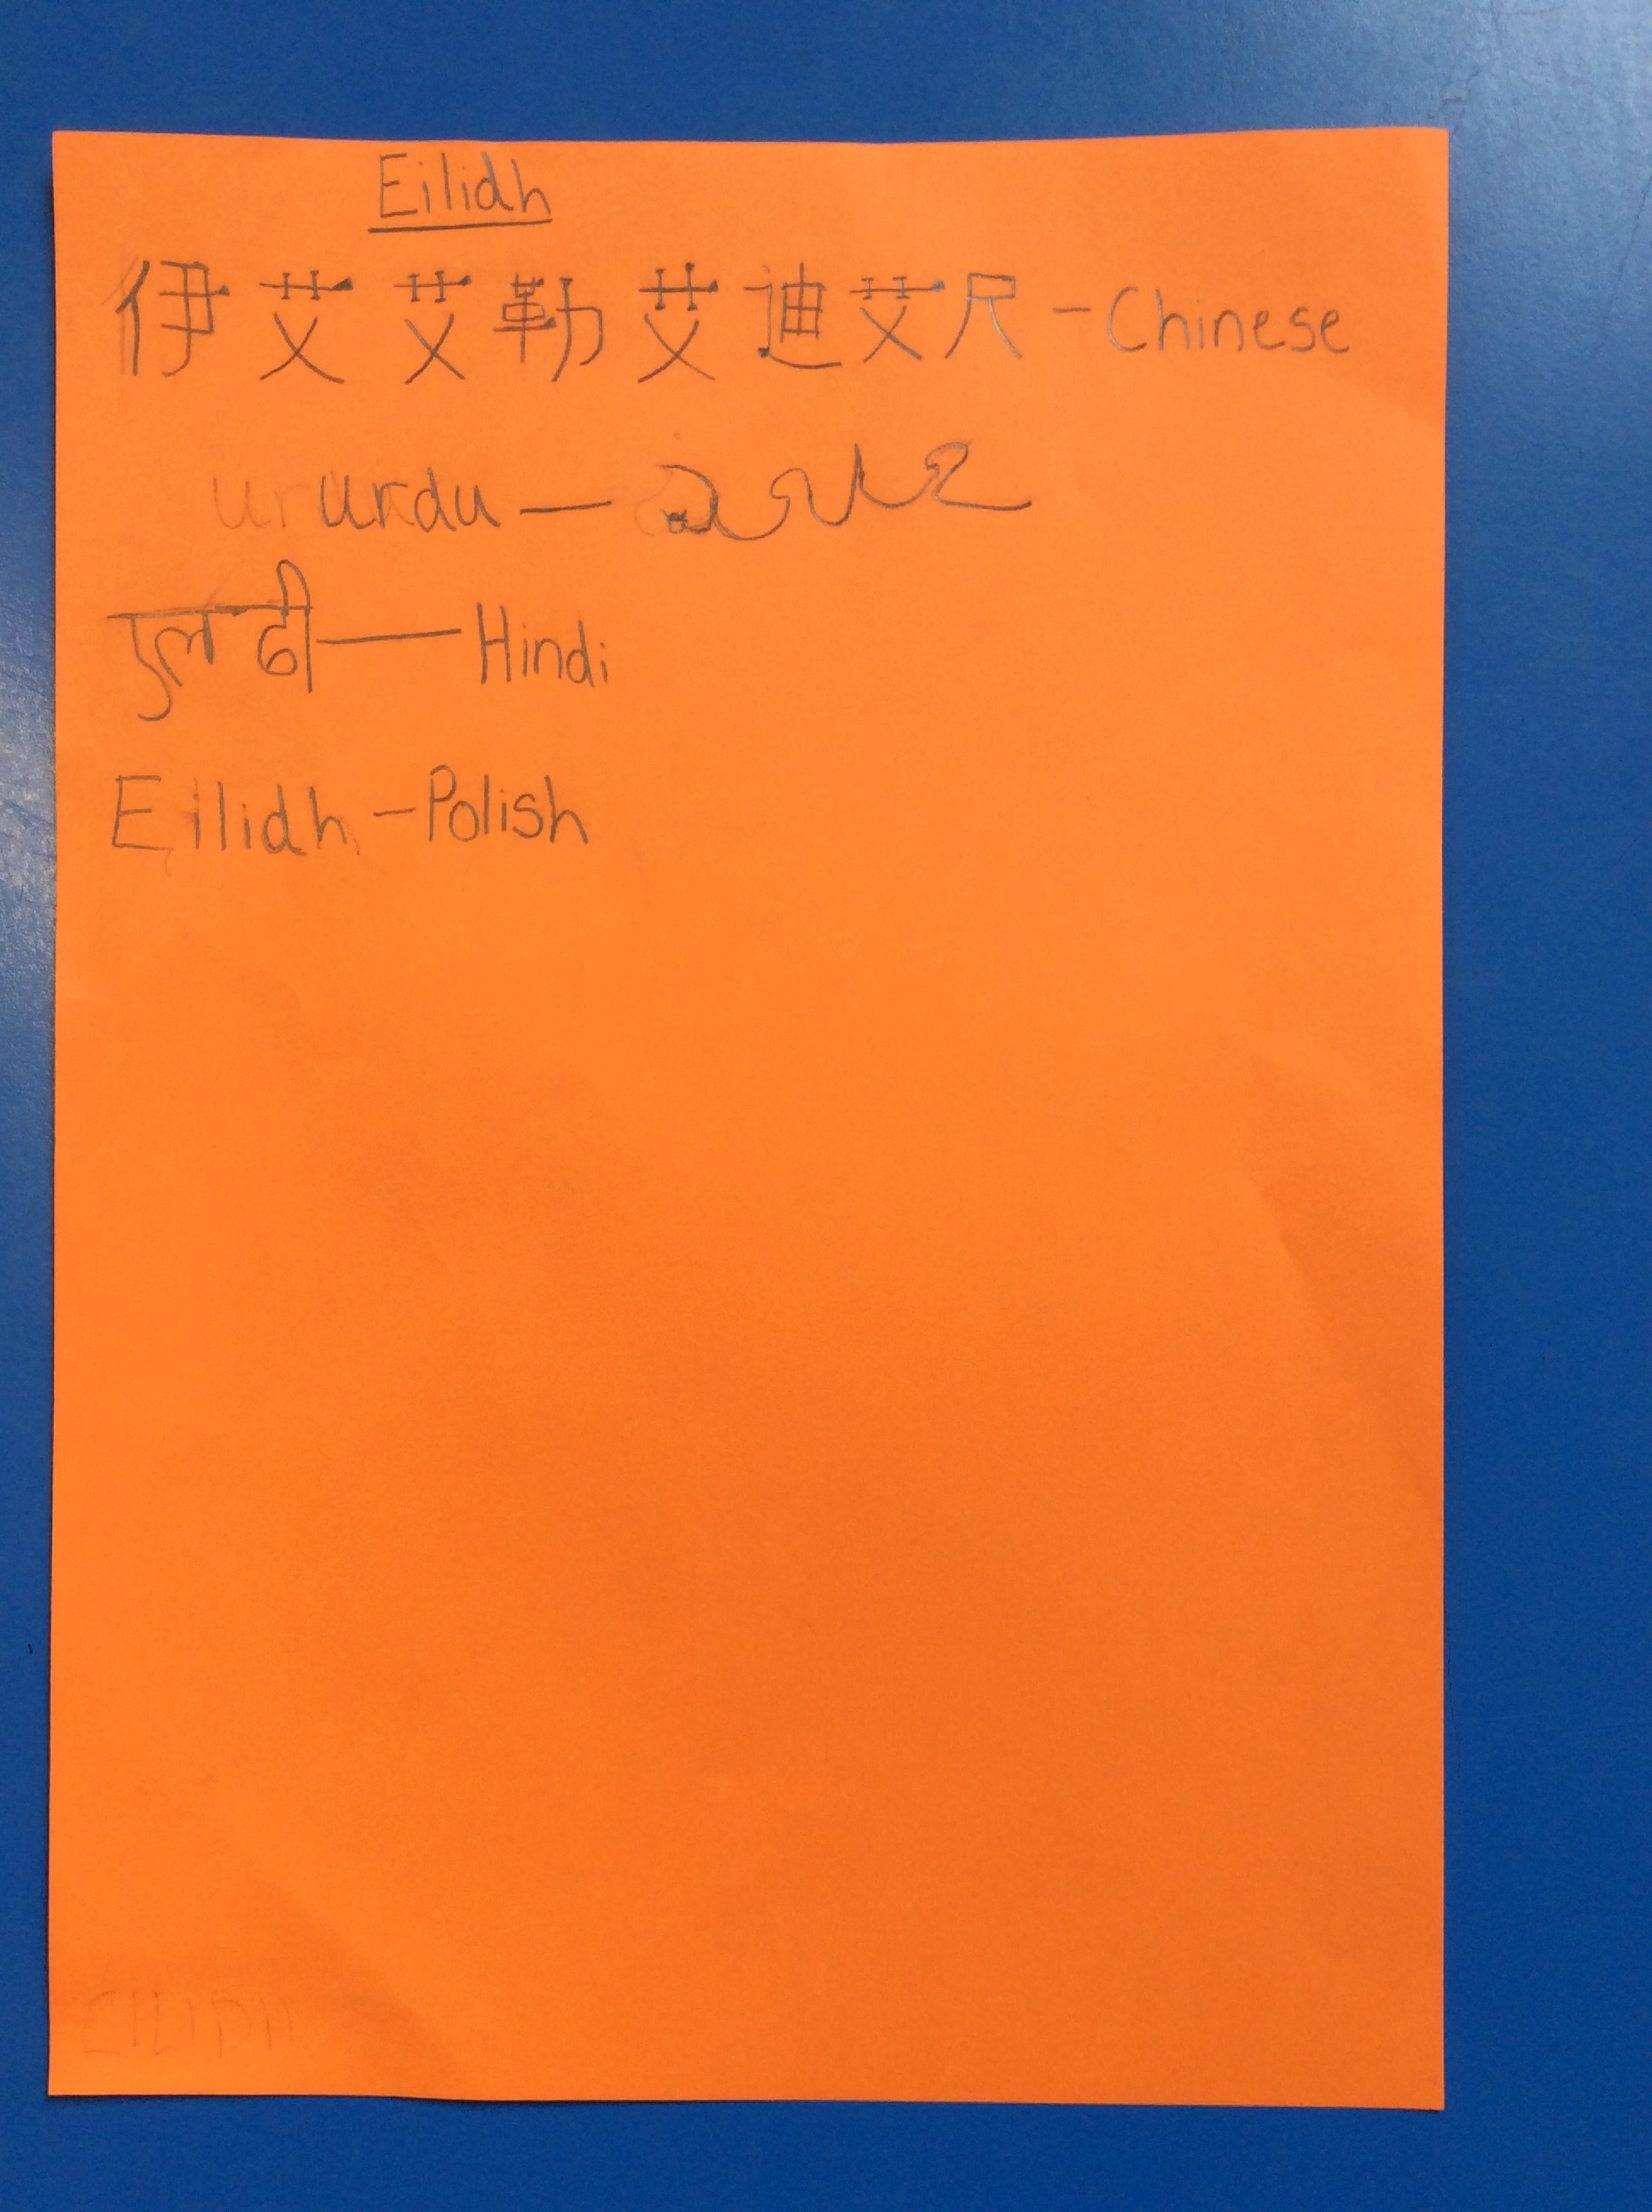 Eilidh
伊艾艾勒艾迪艾尺 - Chinese
urdu —
एलढी — Hindi
Eilidh - Polish
EILIDH